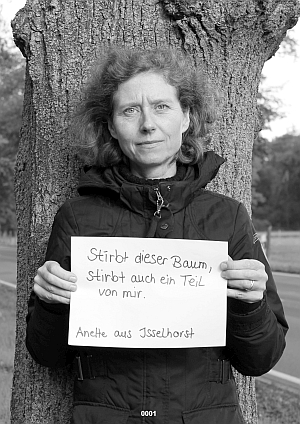 Stirbt dieser Baum,
stirbt auch ein Teil
von mir.
Anette aus Isselhorst
0001